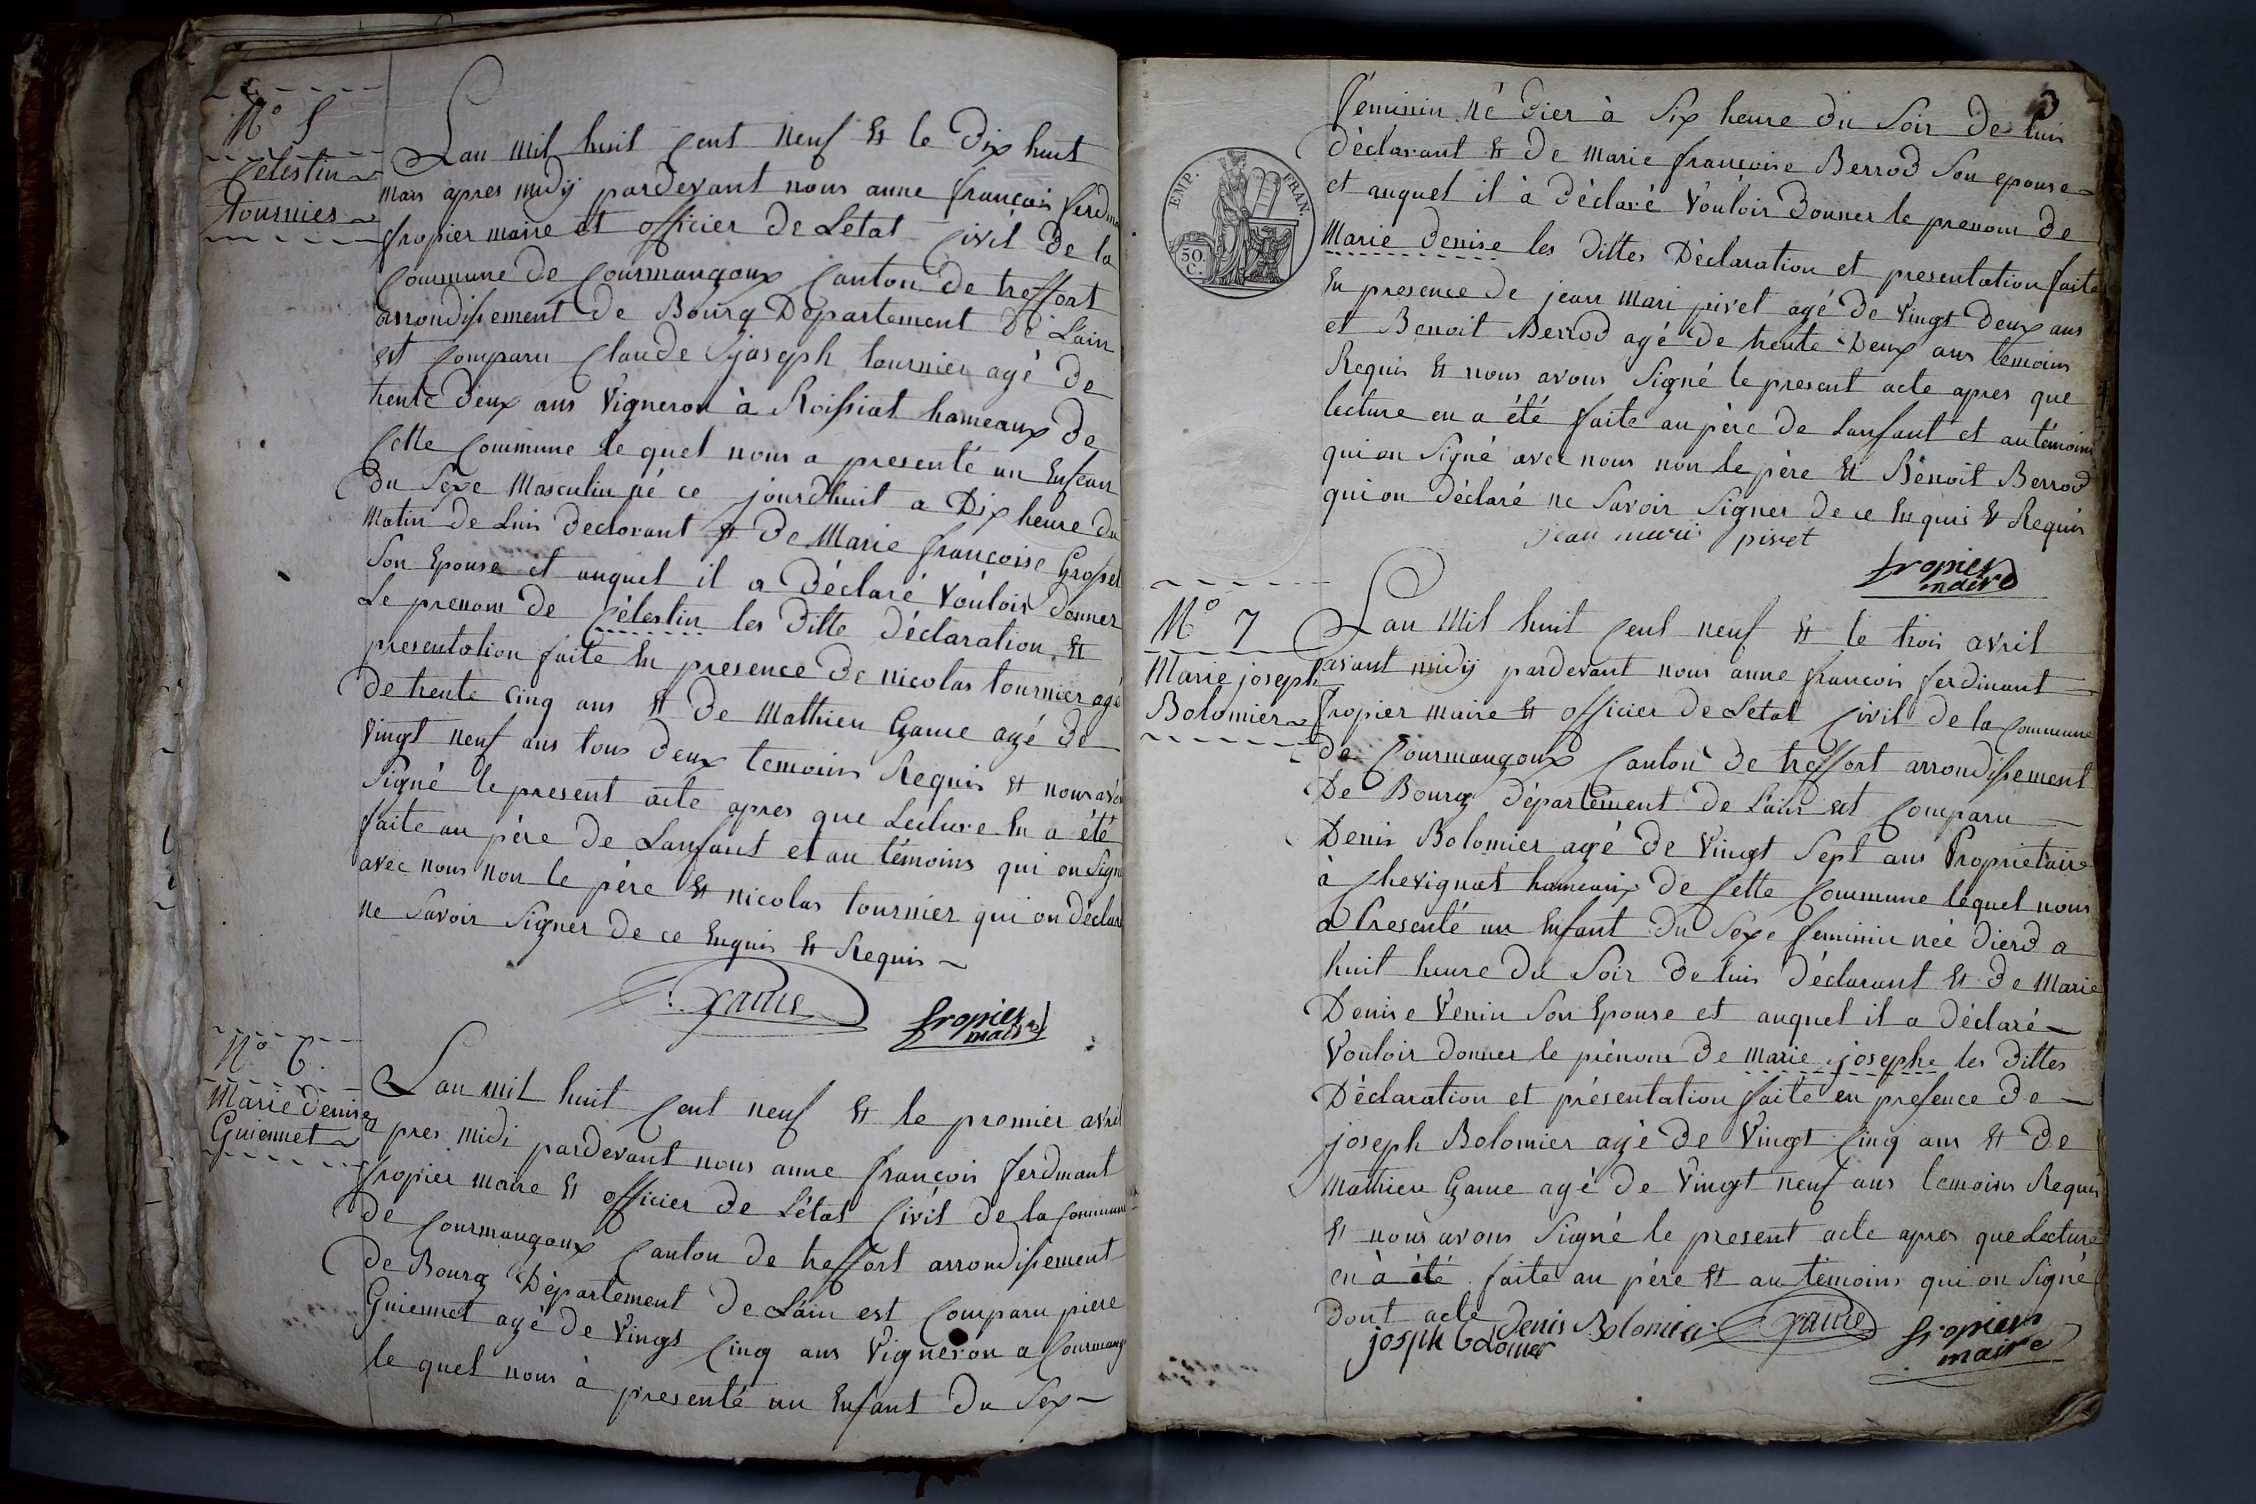 N° 5
Célestin
tournier
Lan mil huit Cent neuf et le Dix huit
mars apres midÿ pardevant nous anne françois ferdina
fropier maire et officier De Létat Civil De la
Commune De Courmangoux Canton De treffort
arrondissement De Bourg Département De Lain
est Comparu Claude joseph tournier agé De
trente Deux ans Vigneron à Roissiat hameaux De
Cette Commune le quel nous a presenté un Enfean
Du Sexe Masculin né ce jourdhuit a Dix heure du
Matin De Luis declarant et De Marie françoise
Son Epouse et auquel il a Déclaré Vouloir Donner
Le prenom De Célestin les Ditte Déclaration et
presentation faite En presence De nicolas tournier agé
De trente cinq ans et De Mathieu Game agé De
Vingt neuf ans tous Deux temoins Requis et nous avon
Signé le present acte apres que Lecture En a été
faite au père De Lanfant et au témoins qui on Signé
avec nous non le père et nicolas tournier qui on Déclaré
ne Savoir Signer De ce Enquis et Requis
Game fropier
maire
N° 6.
Marie Denise
Guiennet
Lan mil huit Cent neuf et le premier avril
apres midi pardevant nous anne françois ferdinant
fropier maire et officier De Létat Civil De la Commune
De Courmangoux Canton de treffort arrondissement
de Bourg Département De Lain est Comparu piere
Guiennet agé De Vingt Cinq ans Vigneron a Courmang
le quel nous à presenté un Enfant Du Sex
3
féminin né Dier à Six heure Du Soir De luis
Déclarant et De Marie françoise Berrod Son epouse
et auquel il à Déclaré Vouloir Donner le prenom De
Marie Denise les Dittes Déclaration et presentation faite
En presence De jean Mari pivet agé De Vingt Deux ans
et Benoit Berrod agé De trente Deux ans témoins
Requis et nous avons Signé le present acte apres que
lecture en a été faite au père De Lanfant et au témoins
qui on Signé avec nous non le père et Benoit Berrod
qui on Déclaré ne Savoir Signer De ce Enquis et Requis
jean marii pivet
fropier
maire
EMP. FRAN.
50.
C.
N° 7
Marie joseph
Bolomier
Lan Mil huit Cent neuf et le trois avril
avant midÿ pardevant nous anne françois ferdinant
fropier maire et officier De Létat Civil de la Commune
De Courmangoux Canton De treffort arrondissement
De Bourg Département De Lain est Comparu
Denis Bolomier agé De Vingt Sept ans Propriétaire
à Chevignat hameaux De Cette Commune lequel nous
a Presenté un Enfant Du Sexe feminin née Dierd a
huit heure Du Soir De luis Déclarant et De Marie
Denise Venin Son Epouse et auquel il a Déclaré
Vouloir donner le prénom De marie josephe les Dittes
Déclaration et présentation faite en presence De
joseph Bolomier agé De Vingt Cinq ans et De
Mathieu Game agé De Vingt neuf ans temoins Requis
et nous avons Signé le present acte apres que Lecture
en à été faite au père et au témoins qui on Signé
Dont acte Denis Bolomier Game fropier
maire